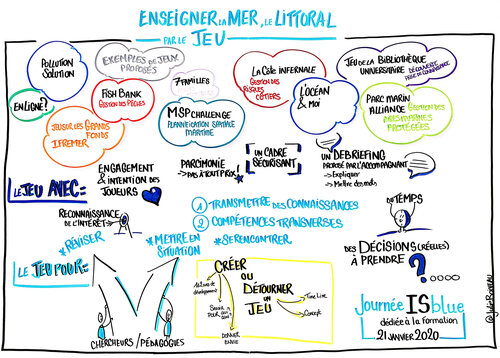 ENSEIGNER LA MER, LE LITTORAL
PAR LE JEU
POLLUTION
SOLUTION
EXEMPLES DE JEUX
PROPOSÉS
EN LIGNE?
FISH BANK
GESTION DES PÊCHES
7 FAMILLES
LA CÔTE INFERNALE
GESTION DES
RISQUES
CÔTIERS
L'OCÉAN
& MOI
JEU DE LA BIBLIOTHÈQUE
UNIVERSITAIRE
DÉCOUVERTE
JEUX SUR LES GRANDS
FONDS
IFREMER
MSP CHALLENGE
PLANIFICATION SPATIALE
MARITIME
PARC MARIN
ALLIANCE GESTION DES
AIRES MARINES
PROTÉGÉES
LE JEU AVEC:
ENGAGEMENT
& INTENTION DES
JOUEURS
PARCIMONIE
→ PAS À TOUT PRIX!
UN CADRE
SÉCURISANT
UN DEBRIEFING
PROPOSÉ PAR L'ACCOMPAGNANT
→ Expliquer
→ Mettre des mots
RECONNAISSANCE
DE L'INTÉRÊT
1 TRANSMETTRE DES CONNAISSANCES
2 COMPÉTENCES TRANSVERSES
DU TEMPS
* RÉVISER
* METTRE EN
SITUATION
* SE RENCONTRER
LE JEU POUR:
DES DÉCISIONS (RÉELLES)
À PRENDRE
?
CRÉER
OU
DÉTOURNER
UN
JEU
Time Line
Concept
CHERCHEURS / PÉDAGOGUES
Journée ISblue
dédiée à la formation
21 JANVIER 2020